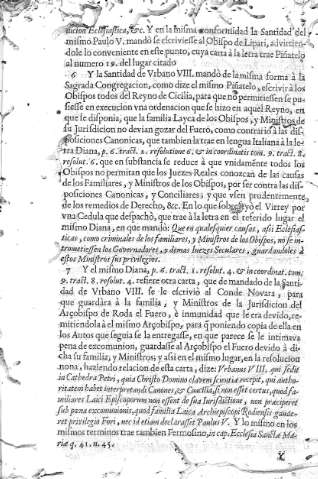 dicion Eclesiastica, &c. Y en la misma conformidad la Santidad del
mismo Paulo V. mandò se escriviesse al Obispo de Lipari, advirtien-
dole lo conveniente en este punto, cuya carta à la letra trae Piñatelo
al numero 19. del lugar citado
6 Y la Santidad de Vrbano VIII. mandò de la misma forma à la
Sagrada Congregacion, como dize el mismo Piñatelo, escrivir à los
Obispos todos del Reyno de Cicilia, para que no permitiessen se pu-
siesse en execucion vna ordenacion que se hizo en aquel Reyno, en
que se disponia, que la familia Layca de los Obispos, y Ministros de
su Jurisdicion no devian gozar del Fuero, como contrario à las dis-
posiciones Canonicas, que tambien la trae en lengua Italiana à la le-
tra Diana, p. 6. tract. 1. resolutione 6. & in coordinatis tom. 9. tract. 8.
resolut. 6. que en substancia se reduce à que vnidamente todos los
Obispos no permitan que los Juezes Reales conozcan de las causas
de los Familiares, y Ministros de los Obispos, por ser contra las dis-
posiciones Canonicas, y Conciliares, y que vsen prudentemente
de los remedios de Derecho, &c. En lo que sobreseyò el Virrey por
vna Cedula que despachò, que trae à la letra en el referido lugar el
mismo Diana, en que mandò: Que en qualesquier causas, assi Eclesias-
ticas, como criminales de los familiares, y Ministros de los Obispos, no se in-
trometiessen los Governadores, y demas Iuezes Seculares, guardandoles à
estos Ministros sus privilegios.
7 Y el mismo Diana, p. 6. tract. 1. resolut. 4. & in coordinat. tom.
9. tract. 8. resolut. 4. refiere otra carta, que de mandado de la Santi-
dad de Vrbano VIII. se le escriviò al Conde Novara, para
que guardàra à la familia, y Ministros de la Jurisdicion del
Arçobispo de Roda el Fuero, è inmunidad que le era devido, re-
mitiendola à el mismo Arçobispo, para q̃ poniendo copia de ella en
los Autos que seguia se la entregasse, en que parece se le intimava
pena de excomunion, guardasse al Arçobispo el Fuero devido à di-
cha su familia, y Ministros, y assi en el mismo lugar, en la resolucion
nona, haziendo relacion de esta carta, dize: Vrbanus VIII. qui sedit
in Cathedra Petri, quia Christo Domino clavem scientiæ recepit, qui autho-
ritatem habet interpretandi Canones, & Concilia, si non esset certus, quod fa-
miliares Laici Episcoporum non essent de sua Iurisdictione, non præciperet
sub pœna excommunionis, quod familia Laica Archiepiscopi Rodiensis gaude-
ret privilegio Fori, nec id etiam declarasset Paulus V. Y lo mismo en los
mismos terminos trae tambien Fermosino, in cap. Ecclesia Sanctæ Ma-
riæ q. 41. n. 45.